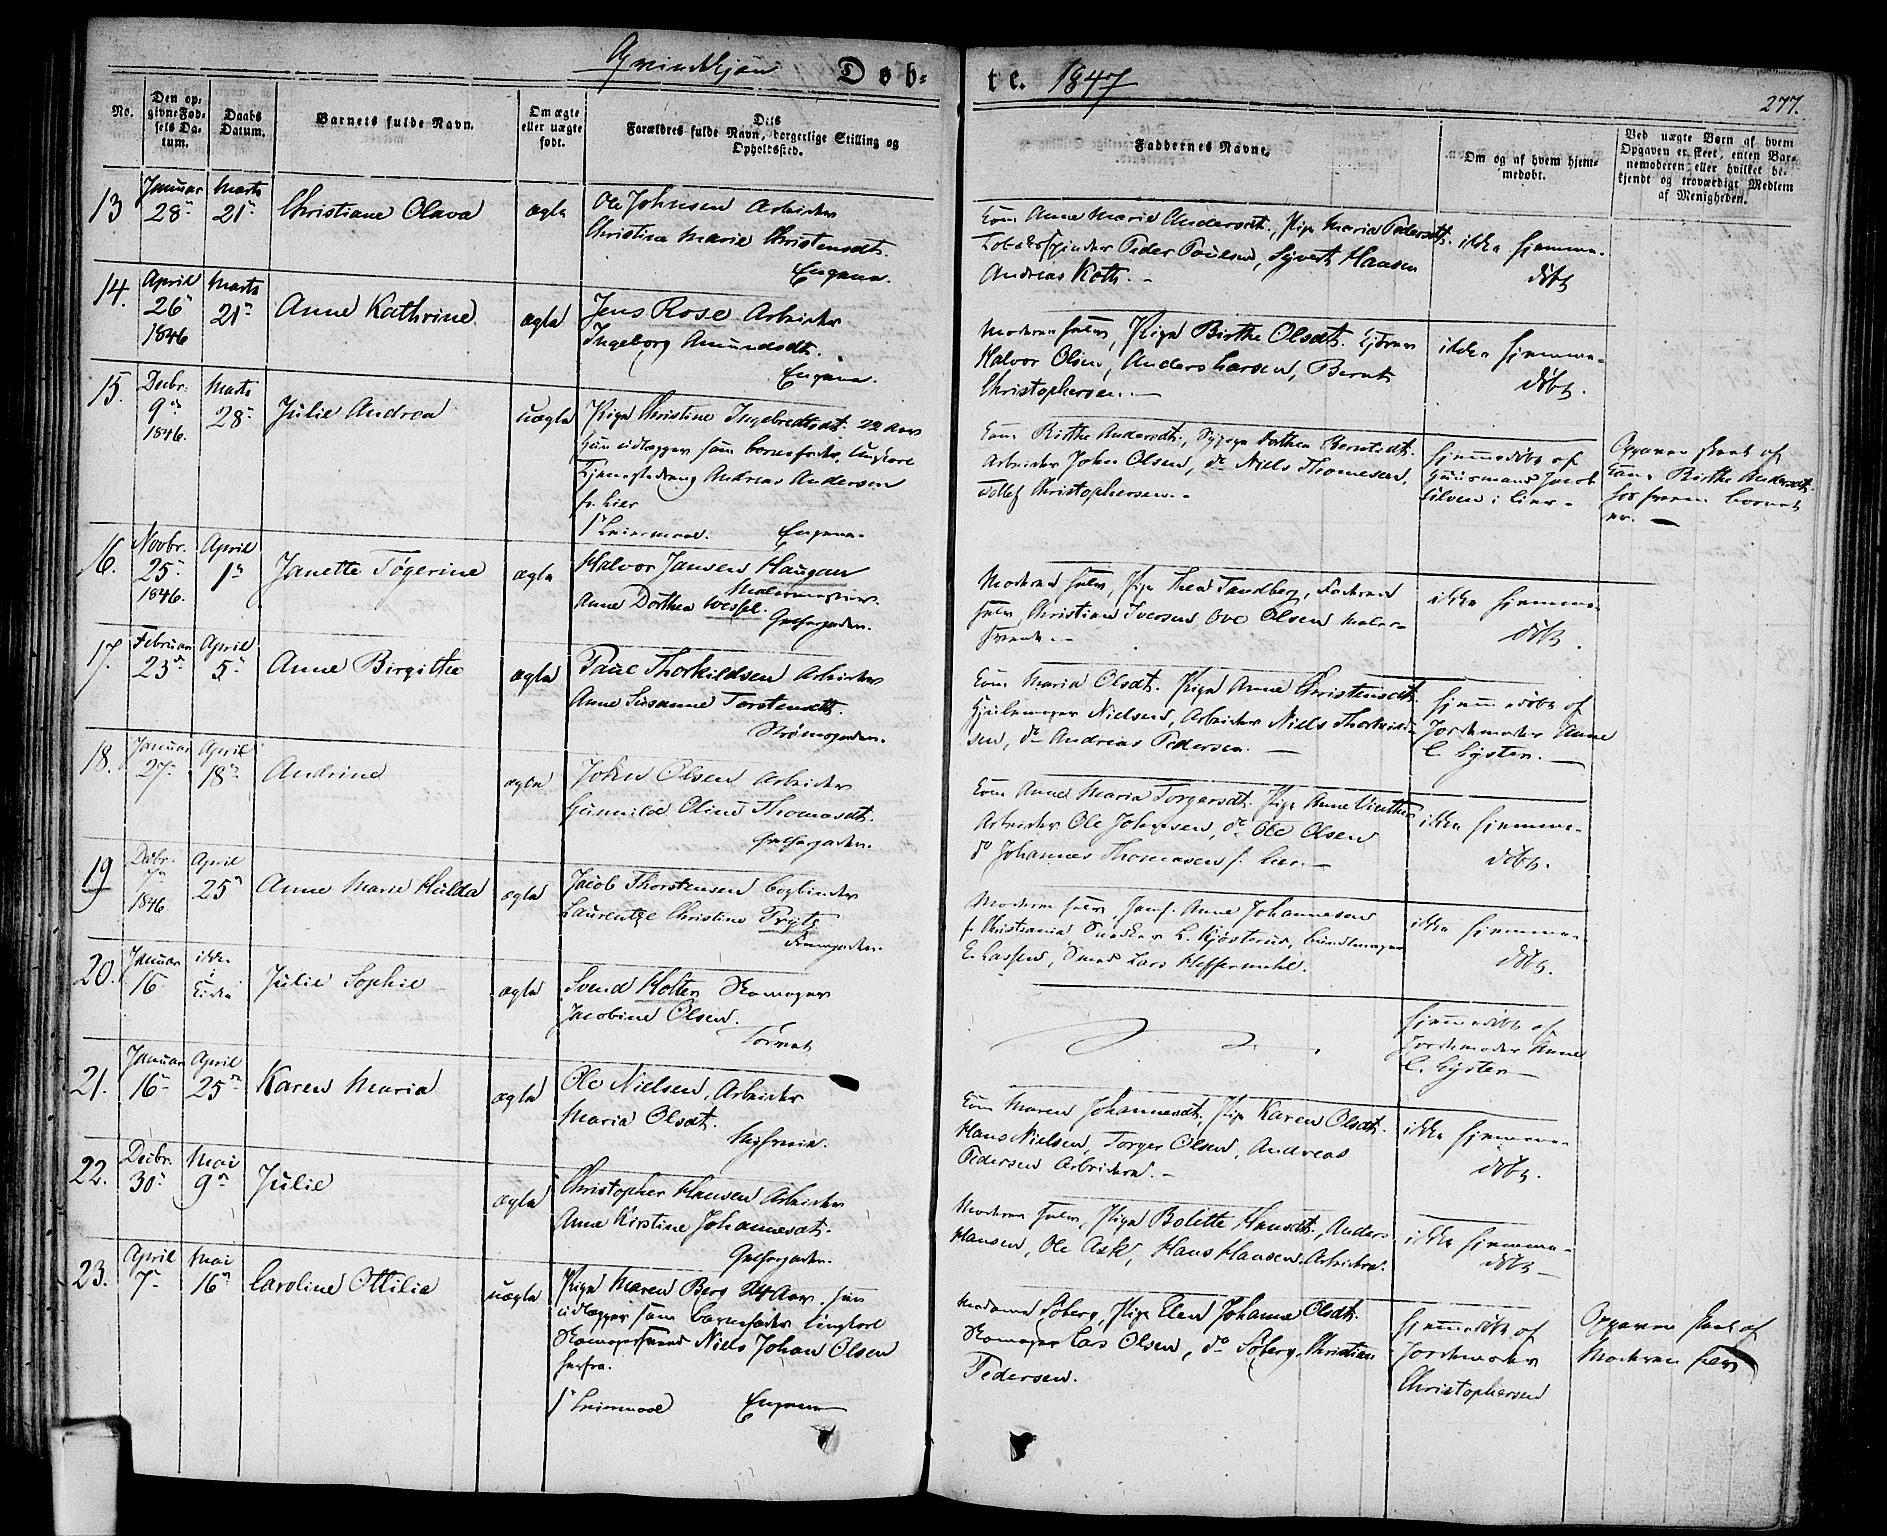 Qvindekjøn Døb-
te. 1847
277.
No.
Den op-
givne Fød-
sels Da-
tum.
Daabs
Datum.
Barnets fulde Navn.
Om ægte
eller uægte
født.
Dets
Forældres fulde Navn, borgerlige Stilling og
Opholdssted.
Faddernes Navne.
Om og af hvem hjem-
medøbt.
Ved uægte Børn af hvem
Opgaven er skeet, enten Bar-
nemoderen eller hvilket be-
kjendt og troværdigt Medlem
af Menigheden.
13
Januar
28
Marts
21
Christiane Olava
ægte
Ole Johnsen Arbeider
Christine Marie Christensdt.
Engene.
Kone Anne Marie Andersdt., Pige Maria Pedersdt.
Peder Poulsen, Syvert Hansen
Andreas Koth.
ikke hjemme-
døbt
14.
April
26
1846
Marts
21
Anne Kathrine
ægte
Jens Rose Arbeider
Ingeborg Amundsdt.
Engene.
Moderen selv, Pige Birthe Olsdt.
Halvor Olsen, Anders Larsen, Bernt
Christophersen.
ikke hjemme-
døbt.
15.
Decbr.
9
1846.
Marts
28
Julie Andrea
uægte
Pige Christine Ingebredtsdt. 22 Aar
hun udlægger som barnefader, Ungkarl
Tjenestedreng Andreas Andersen
fr. Lier
1 Leiermaal. Engene.
Kone Birthe Andersdt., Pige Dorthea Berntsdt.
Arbeider John Olsen, do Niels Thomesen,
Tollef Christophersen.
hjemmedøbt af
Huusmand Jacob
i Lier
Opgaven skeet af
Kone Birthe Andersdt.
16.
Novbr.
25
1846.
April
1
Janette Tøgerine
ægte
Halvor Jansen Haugan
Malermester.
Anne Dorthea Wessel.
Moderen selv, Pige Thea Sandberg, Faderen
selv, Christian Iversen, Ove Olsen Maler-
svend.
ikke hjemme-
døbt.
17.
Februar
23
April
5
Anne Birgithe
ægte
Paul Thorkildsen Arbeider
Anne Susanne Torstensdt.
Strømsgaden.
Kone Maria Olsdt. Pige Anne Christensdt.
Hjulemager Nielsen, Arbeider Niels Thorkild-
sen, do Andreas Pedersen.
hjemmedøbt af
Jordemoder Anne
C. Gysten.
18.
Januar
27
April
18
Andrine
ægte
John Olsen Arbeider
Gunnild Oline Thomasdt.
Kone Anne Maria Torgersdt. Pige Anne
Arbeider Ole Johnsen, do Ole Olsen
do Johannes Thomasen f. Lier.
ikke hjemme-
døbt.
19
Decbr.
1846.
April
25
Anne Marie Hulda
ægte
Jacob Thorstensen bogbinder
Laurentze Christine Trytz
Moderen selv, Jomf. Anne Johannesen
f. Christiania Snedker L. Kjøsterud, Bundtmager
E. Lassen, Smed Lars Heffermehl.
ikke hjemme-
døbt.
20.
Januar
16
ikke
i
Kirke
Julie Sophie
ægte
Svend Holter Skomager
Jacobine Olsen.
Tørmet
hjemmedøbt af
Jordemoder Anne
C. Gysten
21.
Januar
16
April
25
Karen Maria
ægte
Ole Nielsen, Arbeider
Maria Olsdt.
Kone Maren Johannesdt, Pige Karen Olsdt.
Hans Nielsen, Torger Olsen, Andreas
Pedersen Arbeidere.
ikke hjemme-
døbt.
22.
Decbr.
30
Mai
9
Julie
ægte
Christopher Hansen Arbeider
Anne Kirstine Johannesdt.
Moderen selv, Pige Bolette Hansdt., Anders
Hansen, Ole Ask, Hans Hansen Arbeidere.
ikke hjemme-
døbt
23.
April
7
Mai
16
Caroline Ottilia
uægte
Pige Maren Berg 24 Aar. hun
udlægger som barnefader Ungkarl
Skomagersvend Niels Johan Olsen
herfra.
1 Leiermaal Engene
Madame Søberg, Pige Elen Johanne Olsdt.
Skomager Lars Olsen, do Søberg, Christian
Pedersen.
hjemmedøbt af
Jordemoder
Christophersen
Opgaven skeet af
Moderen selv